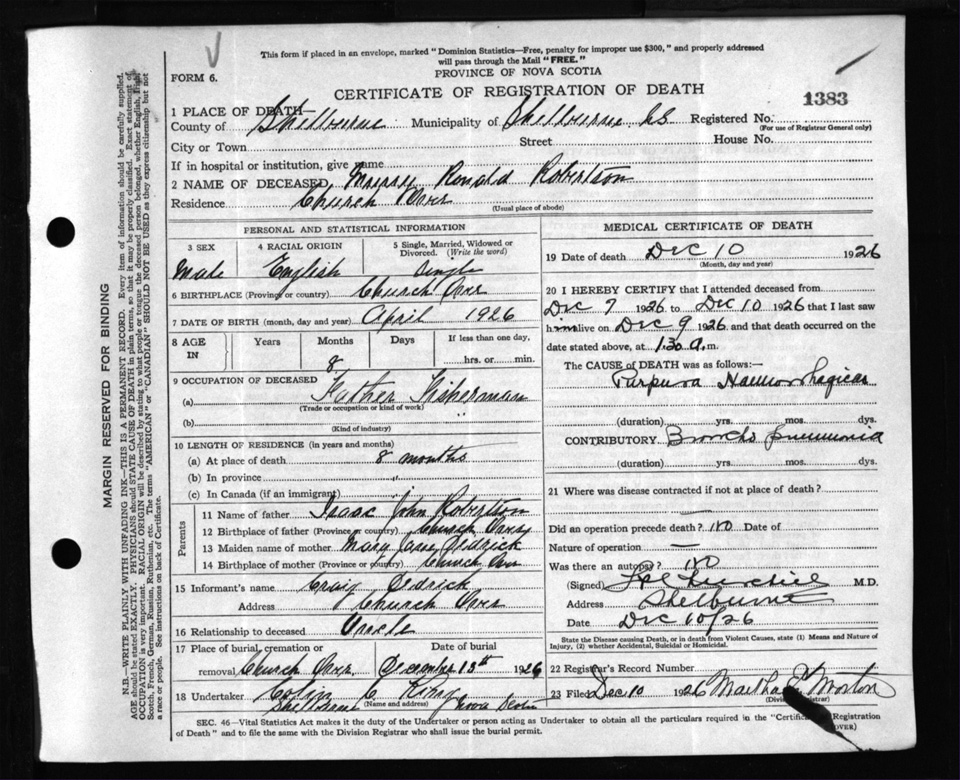 This form if placed in an envelope, marked "Dominion Statistics—Free, penalty for improper use $300," and properly addressed
will pass through the Mail "FREE."
FORM 6.
PROVINCE OF NOVA SCOTIA
CERTIFICATE OF REGISTRATION OF DEATH
1383
1 PLACE OF DEATH—
County of Shelburne Municipality of Shelburne Registered No.
(For use of Registrar General only)
City or Town Street House No.
If in hospital or institution, give name
2 NAME OF DECEASED Ronald Robertson
Residence Church Over
(Usual place of abode)
PERSONAL AND STATISTICAL INFORMATION
3 SEX 4 RACIAL ORIGIN 5 Single, Married, Widowed or
Divorced. (Write the word)
Male English Single
6 BIRTHPLACE (Province or country) Church Over
7 DATE OF BIRTH (month, day and year) April 1926
8 AGE IN Years Months Days If less than one day,
8 hrs. or min.
9 OCCUPATION OF DECEASED
(a) Father Fisherman
(Trade or occupation or kind of work)
(b) "
(Kind of industry)
10 LENGTH OF RESIDENCE (in years and months)
(a) At place of death 8 months
(b) In province "
(c) In Canada (if an immigrant)
Parents
11 Name of father Isaac John Robertson
12 Birthplace of father (Province or country) Church Over
13 Maiden name of mother Mary Jane Dedrick
14 Birthplace of mother (Province or country) Church Over
15 Informant's name Craig Dedrick
Address Church Over
16 Relationship to deceased Uncle
17 Place of burial, cremation or removal Date of burial
Church Over December 13th 1926
18 Undertaker C. King
(Name and address)
Shelburne Nova Scotia
MEDICAL CERTIFICATE OF DEATH
19 Date of death Dec 10 1926
(Month, day and year)
20 I HEREBY CERTIFY that I attended deceased from
Dec 7 1926 to Dec 10 1926 that I last saw
him alive on Dec 9 1926 and that death occurred on
the date stated above, at 130 a.m.
The CAUSE OF DEATH was as follows:—
Purpura Haemorrhagica
(duration) yrs. mos. dys.
CONTRIBUTORY Broncho pneumonia
(duration) yrs. mos. dys.
21 Where was disease contracted if not at place of death?
Did an operation precede death? no Date of
Nature of operation —
Was there an autopsy? no
(Signed) M.D.
Address Shelburne
Date Dec 10/26
State the Disease causing Death, or in death from Violent Causes, state (1) Means and Nature of
Injury, (2) whether Accidental, Suicidal or Homicidal.
22 Registrar's Record Number
23 Filed Dec 10 1926 Martha E. Morton
(Division Registrar)
SEC. 46—Vital Statistics Act makes it the duty of the Undertaker or person acting as Undertaker to obtain all the particulars required in the "Certificate of Registration
of Death" and to file the same with the Division Registrar who shall issue the burial permit.
(OVER)
MARGIN RESERVED FOR BINDING
N.B.—WRITE PLAINLY WITH UNFADING INK—THIS IS A PERMANENT RECORD. Every item of information should be carefully supplied.
AGE should be stated EXACTLY. PHYSICIANS should STATE CAUSE OF DEATH in plain terms, so that it may be properly classified. Exact statement of
OCCUPATION is very important. RACIAL ORIGIN will be described by stating to what people or tongue the deceased person belonged, whether English, Irish,
Scotch, French, German, Russian, Ruthenian, etc. The terms "AMERICAN" or "CANADIAN" SHOULD NOT BE USED as they express citizenship but not
a race or people. See instructions on back of Certificate.